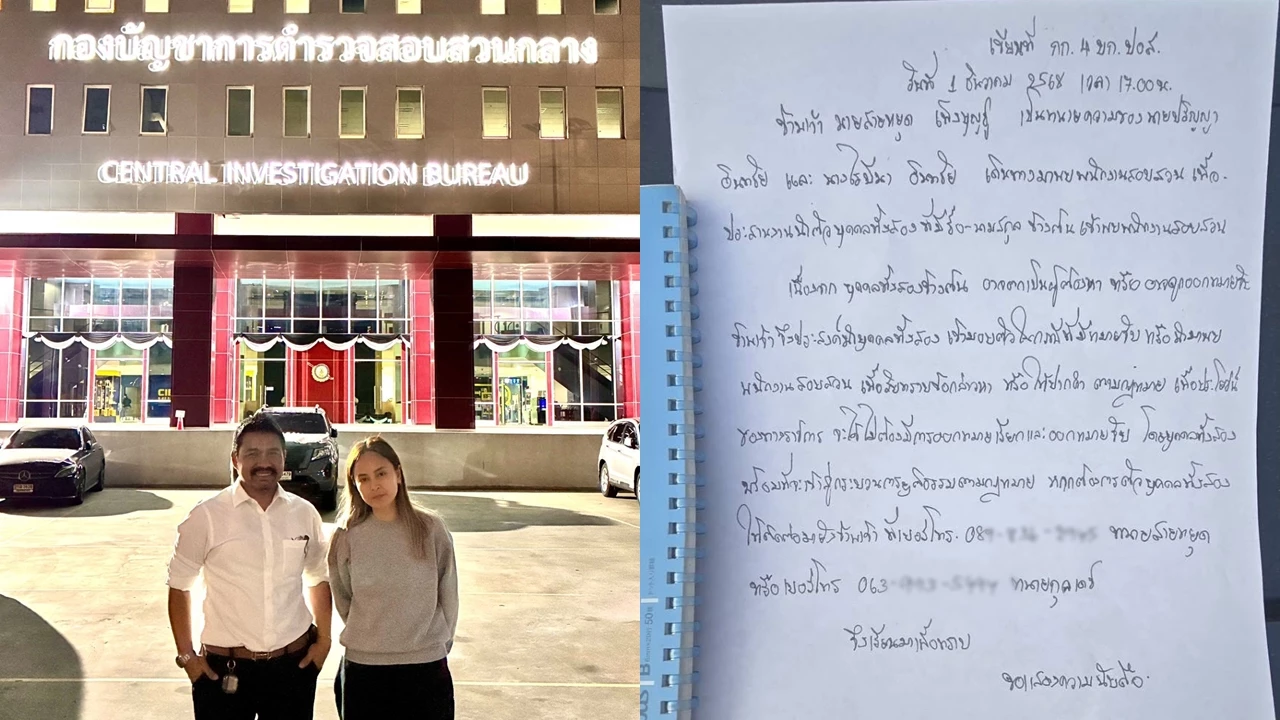 กองบัญชาการตำรวจสอบสวนกลาง
CENTRAL INVESTIGATION BUREAU
เขียนที่ กก. 4 บก. ปอศ.
วันที่ 1 ธันวาคม 2568 เวลา 17.00 น.
ข้าพเจ้า นายสายหยุด เพ็งบุญชู เป็นทนายความของ นายปริญญา
อินทรีย์ และ นางโรบีนา อินทรีย์ เดินทางมาพบพนักงานสอบสวน เพื่อ
ประสานงานนำตัวบุคคลทั้งสอง ที่มีชื่อ-นามสกุล ข้างต้น เข้าพบพนักงานสอบสวน
เนื่องจาก บุคคลทั้งสองข้างต้น อาจตกเป็นผู้ต้องหา หรือ อาจถูกออกหมายจับ
ข้าพเจ้า จึงประสงค์นำบุคคลทั้งสอง เข้ามอบตัว ในกรณีที่มีหมายจับ หรือ นำมาพบ
พนักงานสอบสวน เพื่อรับทราบข้อกล่าวหา หรือ ให้ปากคำ ตามกฎหมาย เพื่อประโยชน์
ของทางราชการ จะได้ไม่ต้องมีการออกหมายเรียกและออกหมายจับ โดยบุคคลทั้งสอง
พร้อมที่จะเข้าสู่กระบวนการยุติธรรมตามกฎหมาย หากต้องการตัวบุคคลทั้งสอง
ให้ติดต่อมายังข้าพเจ้า ที่เบอร์โทร. 08 ทนายสายหยุด
หรือเบอร์โทร 063 ทนายกุลเดช
จึงเรียนมาเพื่อทราบ
ขอแสดงความนับถือ